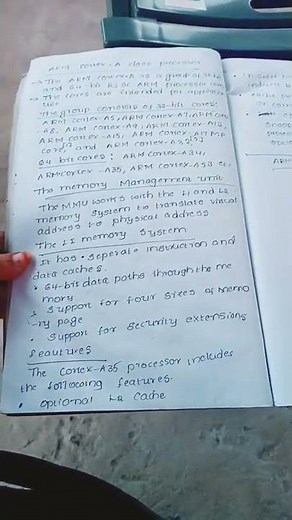 ARM cortex-A class processor
→ The ARM cortex-A is a group of 32 bit
and 64 bit RISC ARM processor cores
→ The cores are intended for application
use
The group consists of 32-bit cores:
ARM cortex-A5, ARM cortex-A7, ARM cortex
A8, ARM cortex-A9, ARM cortex-A12,
ARM cortex-A15, ARM cortex-A17 MP
core, and ARM cortex-A32
64 bit cores: ARM cortex-A34,
ARM cortex-A35, ARM cortex-A53 etc.
The memory Management unit
The MMU works with the L1 and L2
memory system to translate virtual
address to physical address
The L1 memory system
It has seperate instruction and
data caches.
• 64-bit data paths through the me
mory
• Support for four sizes of memo
-ry page
• Support for security extensions
features
The Cortex-A35 processor includes
the following features.
• optional L2 cache